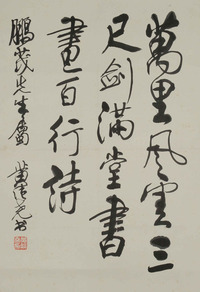 萬里風雲三
尺劍滿堂書
畫百行詩
鵬茂先生屬